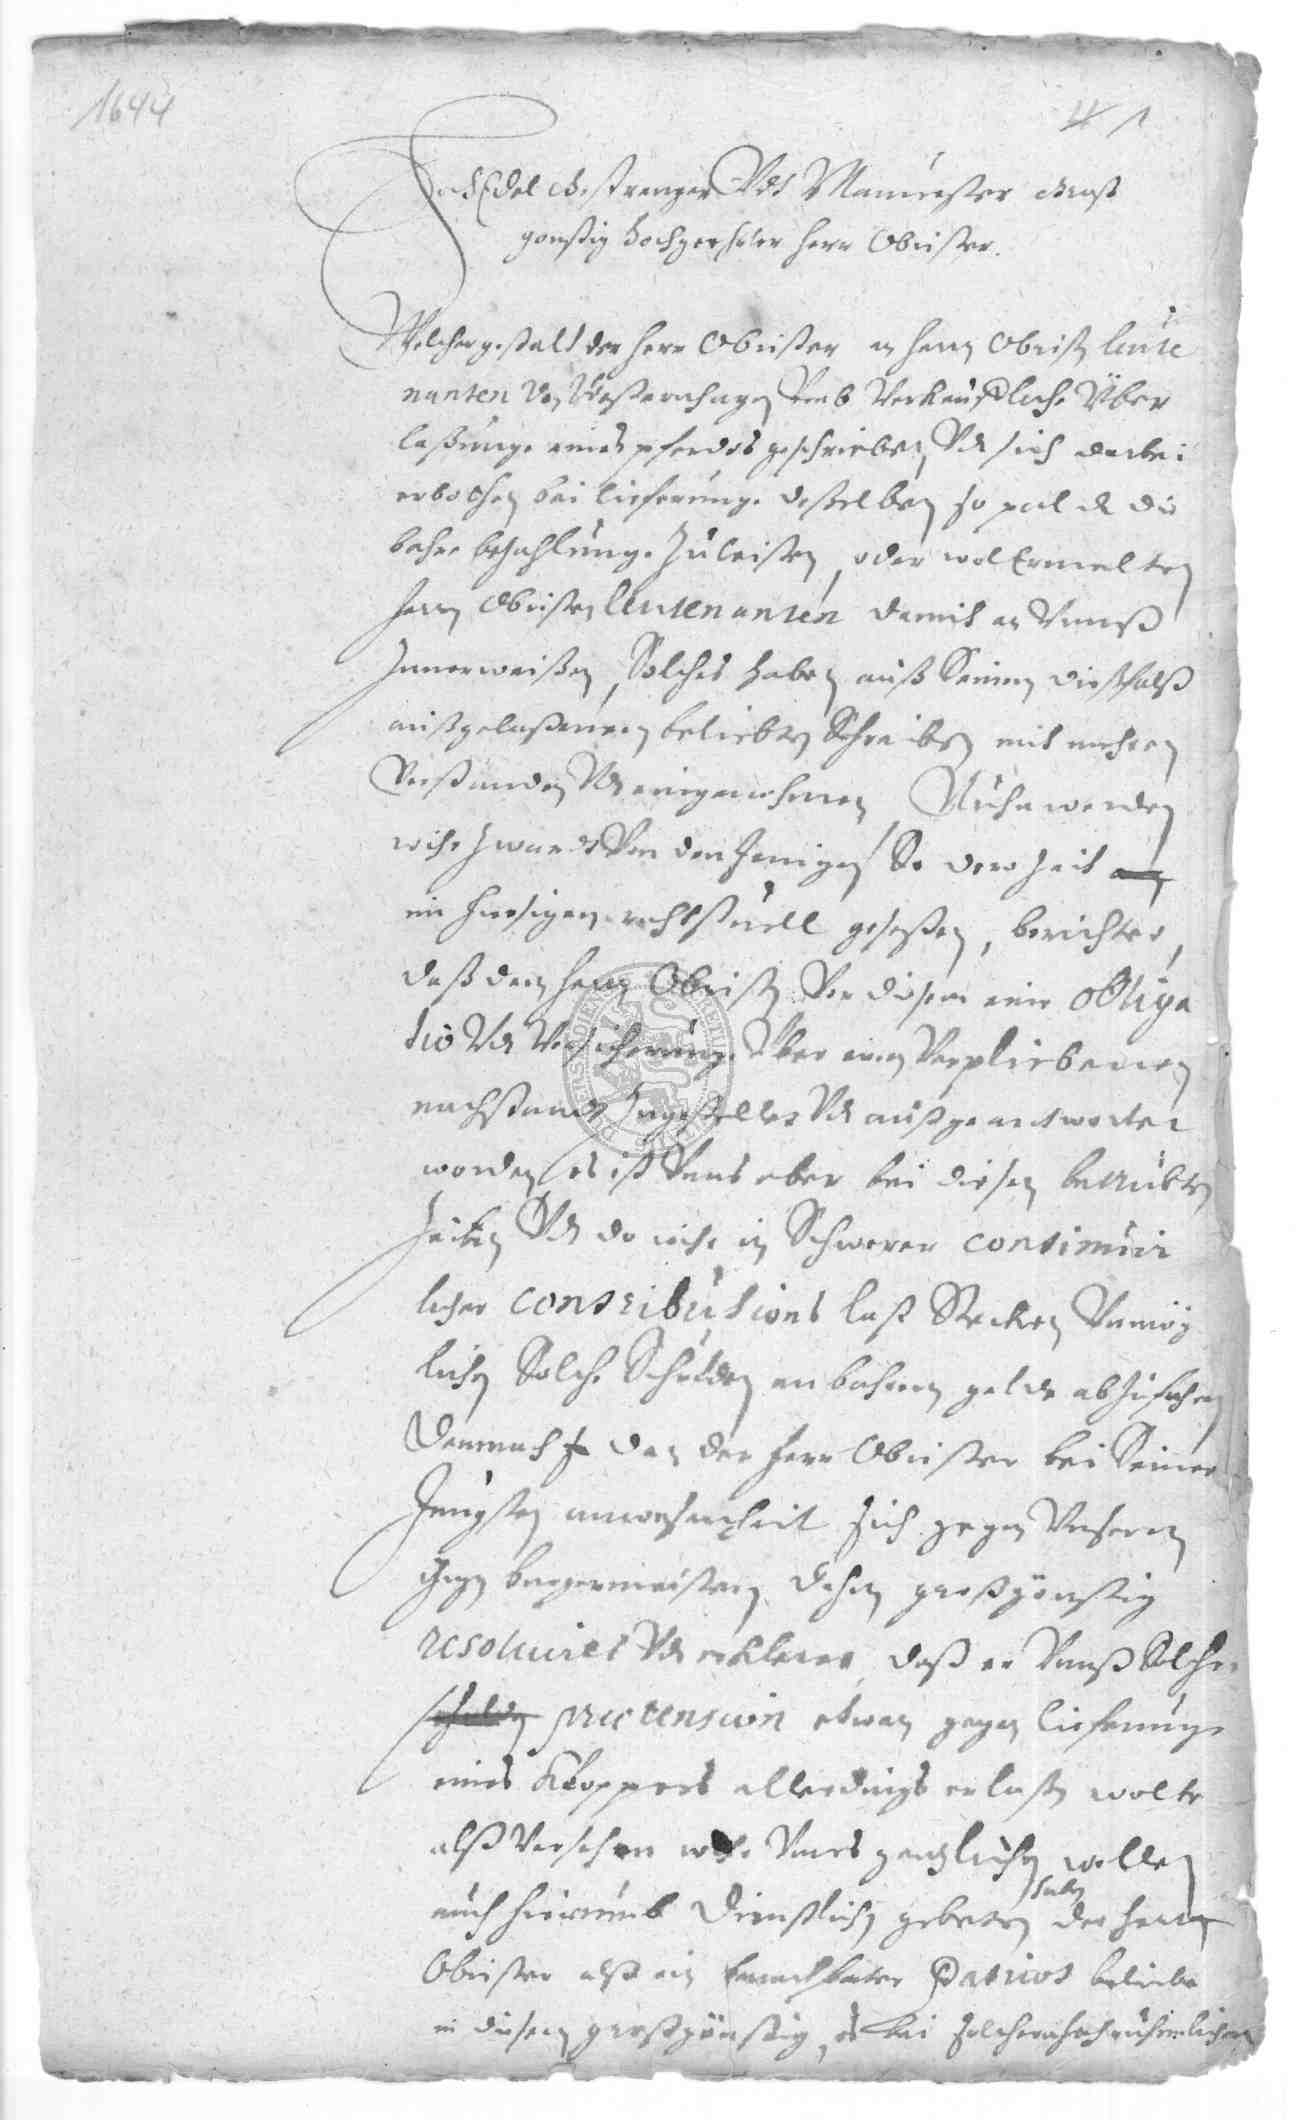 1644
1
HochEdel Gestrenger Vndt Manvester Gros
gonstig hochgeehrter Herr Obrister.
Welchergestalt der Herr Obrister an Herrn Obrist leute
nanten von Westernhagen Vmb Verkauffliche Über
laßunge eines pferdes geschrieben Vnd sich darbei
erbothen bei lieferunge deßelben so pal die
bahre bezahlunge zuleisten, oder wolErmelten
Herrn Obristen leutenanten damit an Vnnß
Zuuerweißen, Solches haben auß Seinen dießfalß
außgelaßenen beliebten Schreiben mit mehren
Verstanden Vnd eingenohmen Nuhn werden
wihr zwardt Von den Jenigen So dero Zeit
im hiesigen rathstuell geseßen, berichtet,
daß dem Herrn Obristen Vor diesem eine obliga
tio Vnd Versicherunge Vber einen Verpliebenen
nachstandt zugestellet Vnd außgeantwortet
worden es ist Vnns aber bei diesen betrübten
Zeiten Vnd do wihr in Schwerer continuir
licher contributions last Stecken Vnmüg
lichen Solche Schulden an bahrem gelde abzufuhren
Demnach dan der Herr Obrister bei Seiner
Jungsten anwesenheit sich gegen Vnseren
Herrn burgermeistern dahin großgönstig
resoluiret Vnd erkleret, daß er Vnnß Solche
schulden praetension etwan gegen lieferunge
eines Kloppers allerdings erlaßen wolte
alß Versehen wihr Vnns gentzlichen wollen
auch hierumb Dienstlich gebeten haben der Herr
Obrister alß ein benachbarter Patriot beliebe
in diesem großgönstig, es bei solcher hochruhmlichen